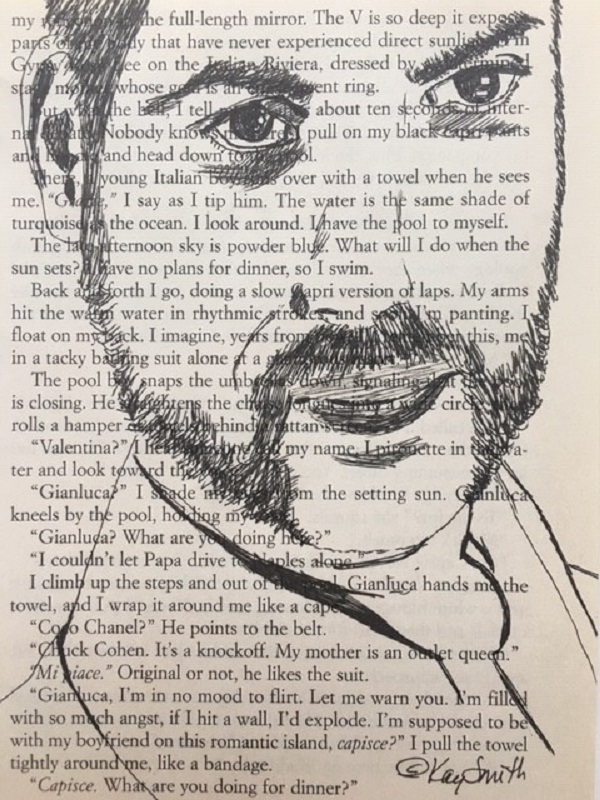 my r the full-length mirror. The V is so deep it expose
parts of body that have never experienced direct sunlig in
Gy on the Italian Riviera, dressed by
sta whose goal is an ent ring.
But what the hell, I tell about ten seconds of inter-
nal debate. Nobody knows me here. I pull on my black capri pants
and and head down to the pool.
There, young Italian over with a towel when he sees
me. “Grazie,” I say as I tip him. The water is the same shade of
turquoise as the ocean. I look around. I have the pool to myself.
The late-afternoon sky is powder blue. What will I do when the
sun sets? I have no plans for dinner, so I swim.
Back and forth I go, doing a slow Capri version of laps. My arms
hit the warm water in rhythmic strokes, and soon I’m panting. I
float on my back. I imagine, years from this, me
in a tacky bathing suit alone at a
The pool boy snaps the umbrellas down, signaling that the
is closing. He straightens the chaise longues into a wide circle
rolls a hamper of towels behind a rattan screen.
“Valentina?” I hear my name. I pirouette in the wa-
ter and look toward the
“Gianluca?” I shade my eyes from the setting sun. Gianluca
kneels by the pool, holding my towel.
“Gianluca? What are you doing here?”
“I couldn’t let Papa drive to Naples alone.”
I climb up the steps and out of the pool. Gianluca hands me the
towel, and I wrap it around me like a cape.
“Coco Chanel?” He points to the belt.
“Chuck Cohen. It’s a knockoff. My mother is an outlet queen.”
“Mi piace.” Original or not, he likes the suit.
“Gianluca, I’m in no mood to flirt. Let me warn you. I’m filled
with so much angst, if I hit a wall, I’d explode. I’m supposed to be
with my boyfriend on this romantic island, capisce?” I pull the towel
tightly around me, like a bandage.
“Capisce. What are you doing for dinner?”
©Kay Smith